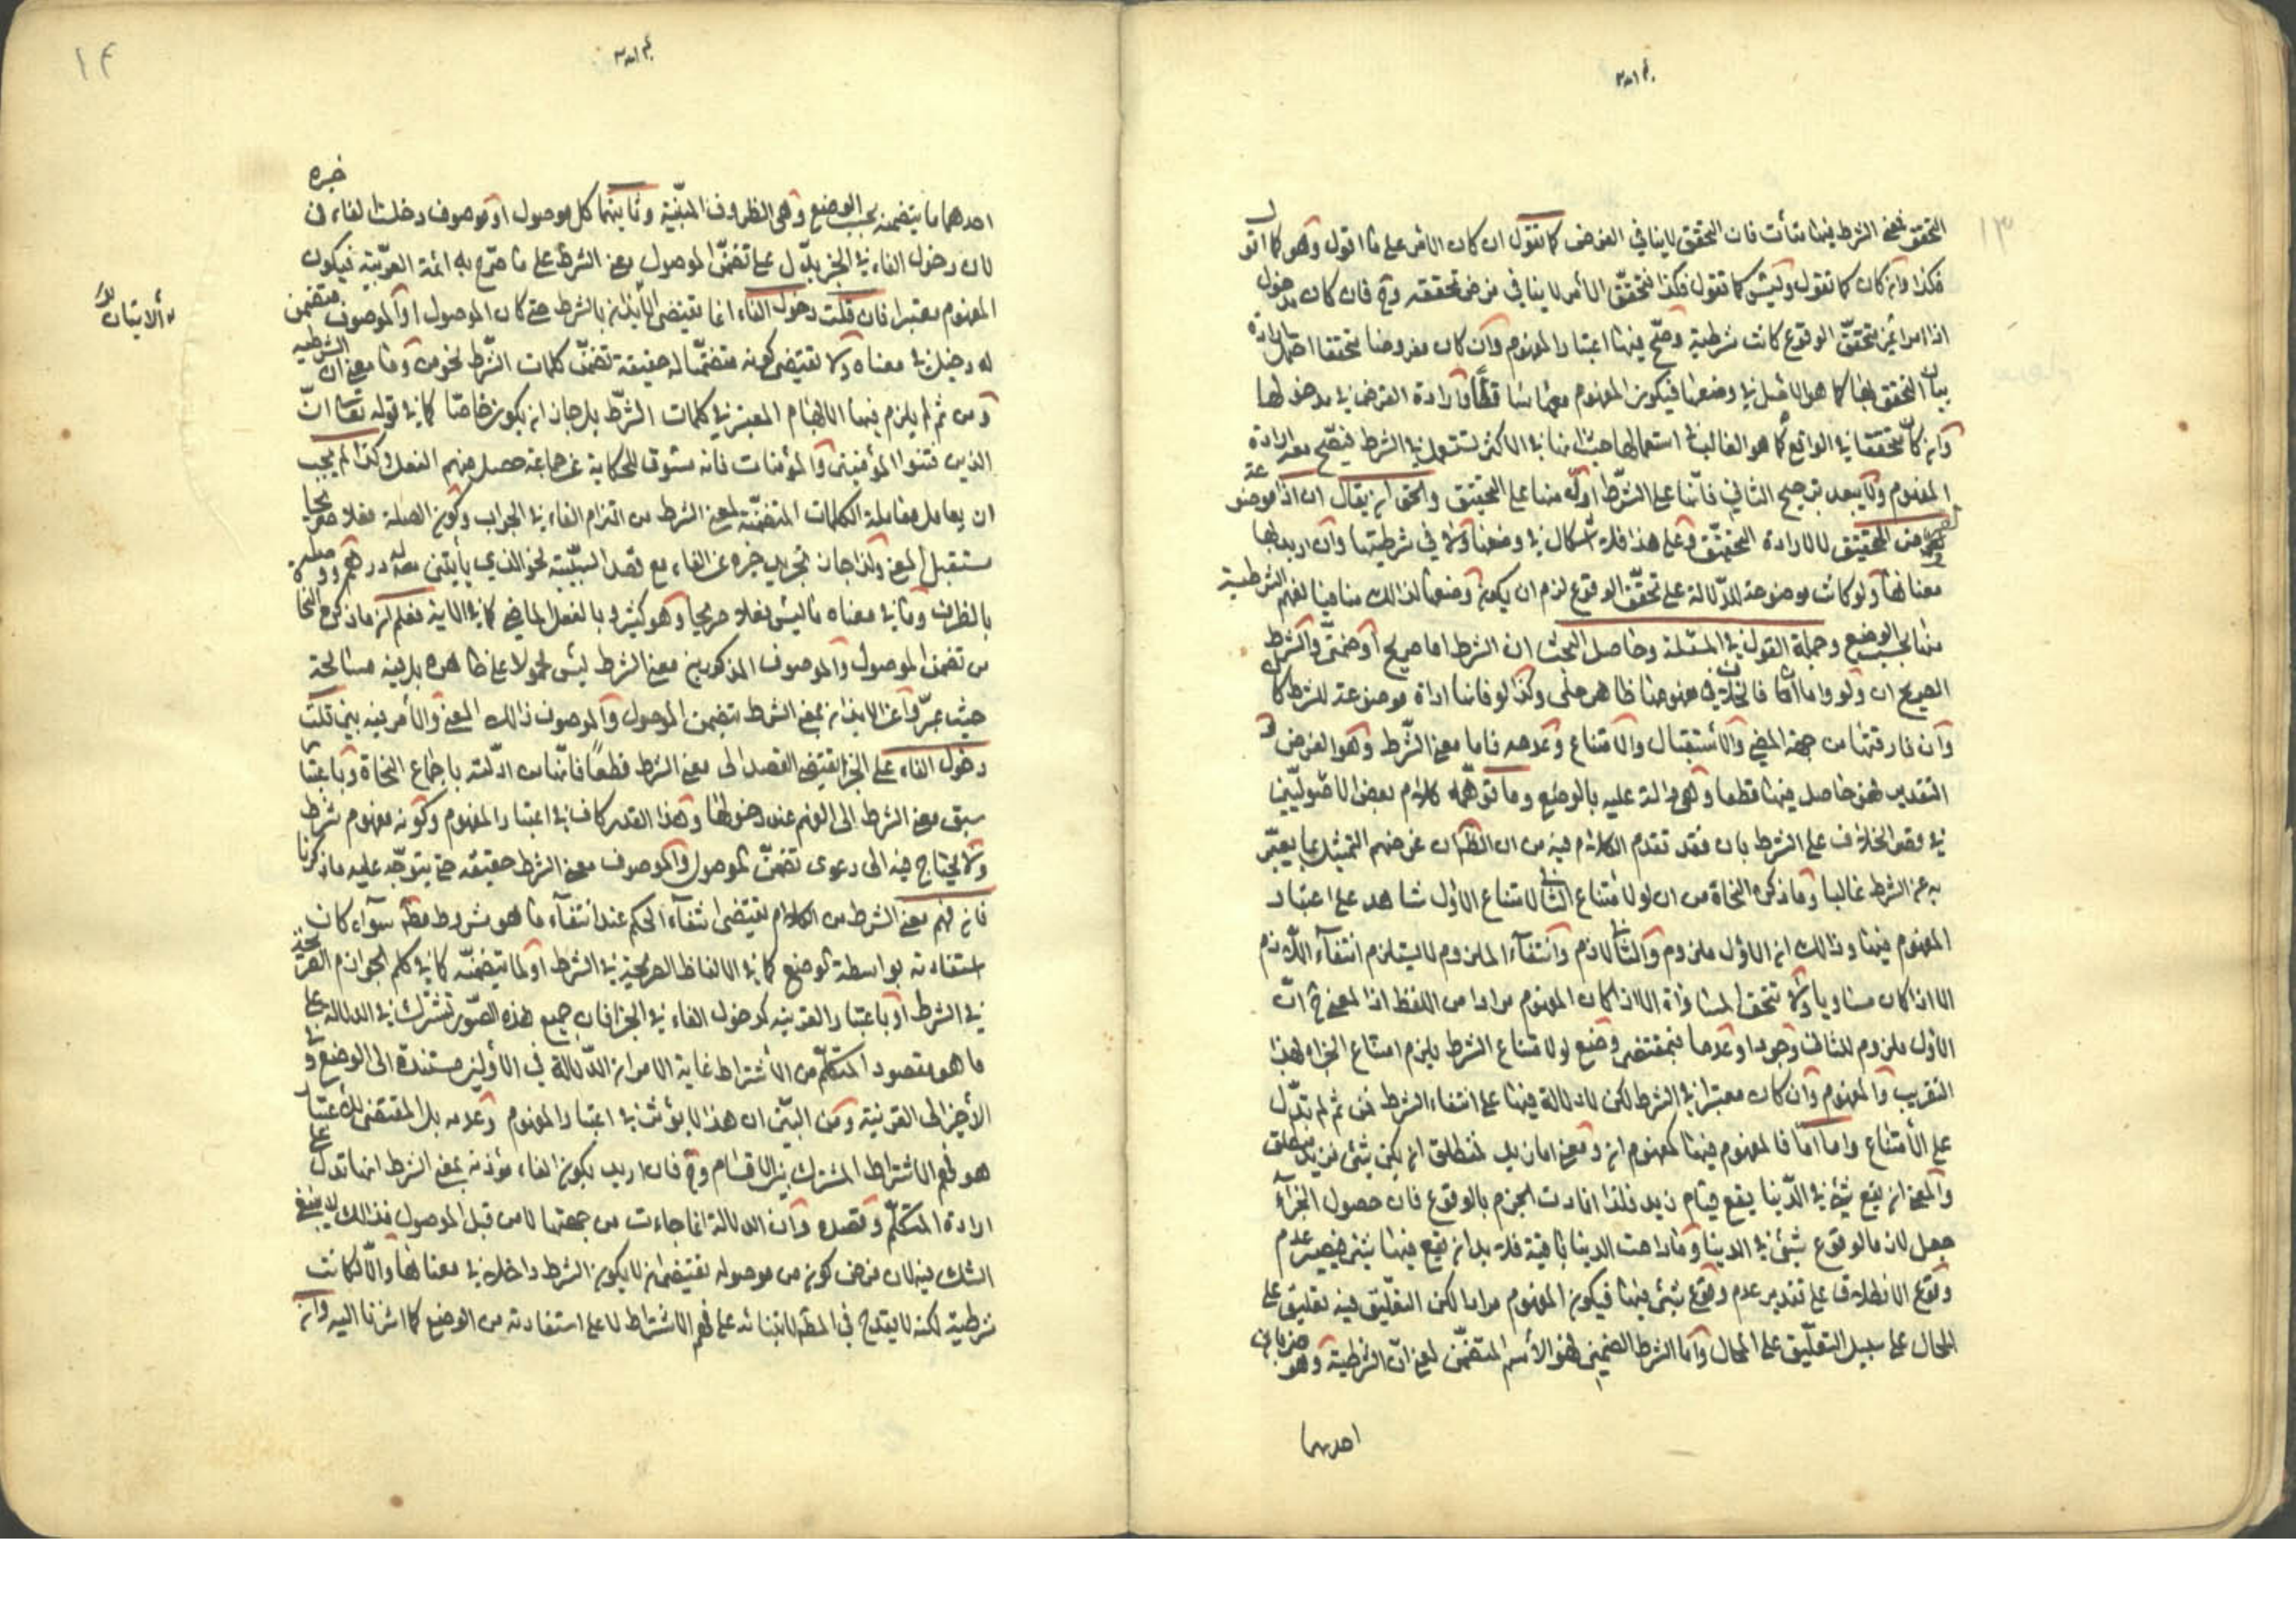 ١٣
التحقق فمعنى الشرط فيها متأت فان التحقق لا ينافي الفرض كما تقول ان كان الامر على ما اقول وهو كما اقول
فكذا وان كان كما تقول وليس كما تقول فكذا فتحقق الأمر لا ينافي فرض تحققه وح فان كان مدخول
اذا امرا غير متحقق الوقوع كانت شرطية وصح فيها اعتبار المفهوم وان كان مفروضا متحققا احتمل ارادة
بيان التحقق بها كما هو الاصل في وضعها فيكون المفهوم معها ساقطا وارادة الفرض في مدخولها
وان كان متحققا في الواقع كما هو الغالب في استعمالها حيث انها في الاكثر تستعمل في الشرط فيصح معه ارادة
المفهوم ولا يبعد ترجيح الثاني فانها على الشرط ادل منها على التحقيق والحق ان يقال ان اذا موضوعة
لفرض التحقيق لا لارادة التحقق وعلى هذا فلا اشكال في وضعها ولا في شرطيتها وان اريد بها
معناها ولو كانت موضوعة للدلالة على تحقق الوقوع لزم ان يكون وضعها لذلك منافيا لفهم الشرطية
منها بحسب الوضع وجملة القول في المسئلة وحاصل البحث ان الشرط اما صريح أو ضمني والشرط
الصريح ان ولو واما أما فالخلاف في مفهومها ظاهر جلي وكذا لو فانها اداة موضوعة للشرط كان
وان فارقتها من جهة المضي والأستقبال والامتناع وعدمه فاما معنى الشرط وهو الفرض و
التقدير فهو حاصل فيها قطعا وهي دالة عليه بالوضع وما توهمه كلام بعض الاصوليين
في قصر الخلاف على الشرط بان فقد تقدم الكلام فيه من ان الظ ان غرضهم التمثيل بما يعبر
به عن الشرط غالبا وما ذكره النحاة من ان لو لامتناع الثاني لامتناع الأول شاهد على اعتبار
المفهوم فيها وذلك ان الاول ملزوم والثاني لازم وانتفاء الملزوم لا يستلزم انتفاء اللازم
الا اذا كان مساويا ولا تتحقق المساواة الا اذا كان المفهوم مرادا من اللفظ اذ المعنى ح ان
الاول ملزوم للثاني وجودا وعدما فبمقتضى وضع لو لامتناع الشرط يلزم امتناع الجزاء لهذا
التقريب والمفهوم وان كان معتبرا في الشرط لكن لا دلالة فيها على انتفاء الشرط فمن ثم لم تدل
على الأمتناع واما أما فالمفهوم فيها كمفهوم ان ومعنى اما زيد فمنطلق ان يكن شئ فزيد منطلق
والمعنى ان يقع شئ في الدنيا يقع قيام زيد فلذا افادت الجزم بالوقوع فان حصول الجزاء
جعل لازما لوقوع شئ في الدنيا وما دامت الدنيا باقية فلا بد ان يقع فيها شئ فيصير عدم
وقوع الانطلاق على تقدير عدم وقوع شئ فيها فيكون المفهوم مرادا لكن التعليق فيه تعليق على
المحال على سبيل التعليق على المحال وأما الشرط الضمني فهو الأسم المتضمن لمعنى ان الشرطية وهو ضربان
احدهما
١٤
احدهما ما يتضمنه بحسب الوضع وهي الظروف المبنية وثانيهما كل موصول او موصوف دخلت الفاء في خبره
لان دخول الفاء في الخبر يدل على تضمن الموصول معنى الشرط على ما صرح به ائمة العربية فيكون
المفهوم معتبرا فان قلت دخول الفاء انما يقتضي الأيذان بالشرط حتى كان الموصول او الموصوف متضمن
له دخيل في معناه ولا تقتضي كونه متضمنا له حقيقة تضمن كلمات الشرط نحو من وما معنى ان الشرطية
ومن ثم لم يلزم فيها الابهام المعتبر في كلمات الشرط بل جاز ان يكون خاصا كما في قوله تعالى ان
الذين فتنوا المؤمنين والمؤمنات فانه مسوق للحكاية عن جماعة حصل منهم الفعل وكذا لم يجب
ان يعامل معاملة الكلمات المتضمنة لمعنى الشرط من التزام الفاء في الجواب وكون الصلة فعلا صريحا
مستقبل المعنى ولذا جاز تجريد خبره عن الفاء مع قصد السببية نحو الذي يأتيني له درهم ووصله
بالظرف وما في معناه مما ليس فعلا صريحا وهو كثير و بالفعل الماضي كما في الاية فعلم ان ما ذكره النحاة
من تضمن الموصول والموصوف المذكورين معنى الشرط ليس محمولا على ظاهره بل فيه مسامحة
حيث عبروا عن الايذان بمعنى الشرط بتضمن الموصول والموصوف ذلك المعنى والأمر فيه بين قلت
دخول الفاء على الخبر يقتضي القصد الى معنى الشرط قطعا فانها من ادلته باجماع النحاة وباعتبار
سبق معنى الشرط الى الفهم عند دخولها وهذا القدر كاف في اعتبار المفهوم وكونه مفهوم شرط
ولا يحتاج فيه الى دعوى تضمن الموصول والموصوف معنى الشرط حقيقة حتى يتوجه عليه ما ذكرنا
فان فهم معنى الشرط من الكلام يقتضي انتفاء الحكم عند انتفاء ما هو مشروط به سواء كان
استفادته بواسطة الوضع كما في الالفاظ الصريحة في الشرط او لما يتضمنه كما في كلم الجوازم
في الشرط او باعتبار القرينة كدخول الفاء في الخبر فان جميع هذه الصور تشترك في الدلالة على
ما هو مقصود المتكلم من الأشتراط غاية الامر ان الدلالة في الأولين مستندة الى الوضع و في
الأخير الى القرينة ومن البين ان هذا لا يؤثر في اعتبار المفهوم وعدمه بل المقتضي للاعتبار
هو فهم الاشتراط المشترك بين الاقسام وح فان اريد بكون الفاء مؤذنة بمعنى الشرط انها تدل على
ارادة المتكلم وقصده وان الدلالة انما جاءت من جهتها لا من قبل الموصول فذلك لا ينبغي
الشك فيه لان فرض كون من موصوله يقتضي ان لا يكون الشرط داخلا في معناها والا لكانت
شرطية لكنه لا يقدح في المطلوب لابتنائه على فهم الاشتراط لا على استفادته من الوضع كما اشرنا اليه وان